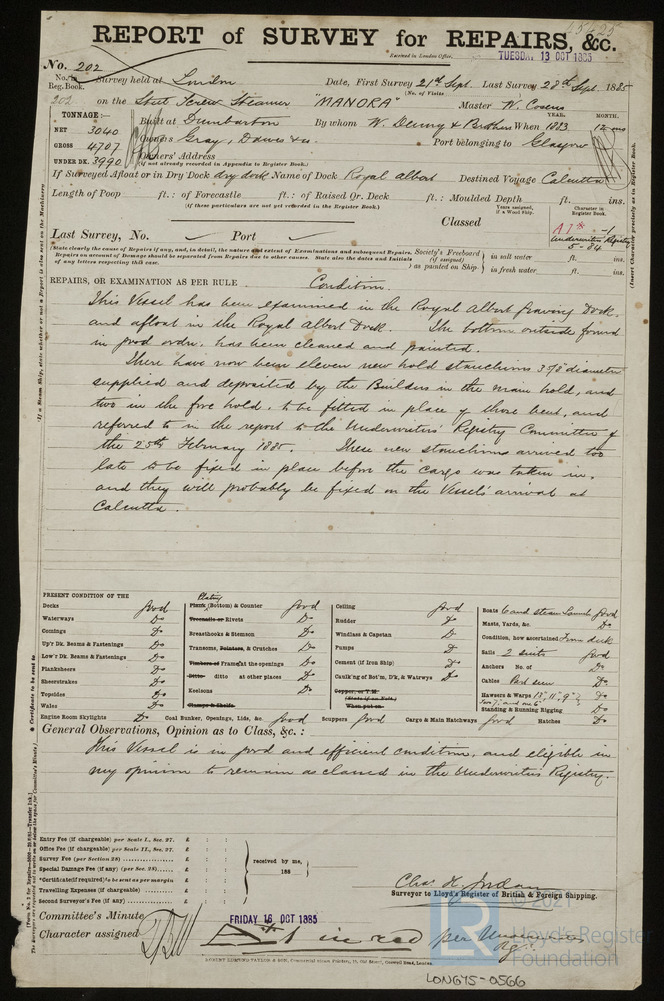 REPORT of SURVEY for REPAIRS, &c.
Received in London Office. TUESDAY 13 OCT 1885
No. 202
No. in Reg. Book. Survey held at London Date, First Survey 21st Sept. Last Survey 28th Sept. 1885
(No. of Visits
202 on the Steel Screw Steamer "MANORA" Master W. Cosens
TONNAGE:— Built at Dumbarton By whom W. Denny & Brothers When 1883 YEAR. MONTH. 12 mo
NET 3040
GROSS 4707 Owners Gray, Dawes & Co. Port belonging to Glasgow
UNDER DK. 3990 Owners' Address
(if not already recorded in Appendix to Register Book.)
If Surveyed Afloat or in Dry Dock dry dock Name of Dock Royal Albert Destined Voyage Calcutta
Length of Poop ft.: of Forecastle ft.: of Raised Qr. Deck ft.: Moulded Depth ft. ins.
(If these particulars are not yet recorded in the Register Book.)
Years assigned, if a Wood Ship. Character in Register Book.
Classed A1* -1
Underwriters Registry
5-84
Last Survey, No. Port
(State clearly the cause of Repairs if any, and, in detail, the nature and extent of Examinations and subsequent Repairs.
Repairs on account of Damage should be separated from Repairs due to other causes. State also the dates and Initials
of any letters respecting this case.
Society's Freeboard (if assigned) as painted on Ship. in salt water ft. ins.
in fresh water ft. ins.
REPAIRS, OR EXAMINATION AS PER RULE Condition.
This Vessel has been examined in the Royal Albert Graving Dock,
and afloat in the Royal Albert Dock. The bottom outside found
in good order, has been cleaned and painted.
There have now been eleven new hold stanchions 3 5/8" diameter
supplied and deposited by the Builders in the main hold, and
two in the fore hold, to be fitted in place of those bent, and
referred to in the report to the Underwriters' Registry Committee of
the 25th February 1885. These new stanchions arrived too
late to be fixed in place before the cargo was taken in,
and they will probably be fixed on the Vessel's arrival at
Calcutta.
PRESENT CONDITION OF THE
Decks good
Waterways Do
Comings Do
Up'r Dk. Beams & Fastenings Do
Low'r Dk. Beams & Fastenings Do
Planksheers Do
Sheerstrakes Do
Topsides Do
Wales Do
Plating
Plank (Bottom) & Counter good
Treenails or Rivets Do
Breasthooks & Stemson Do
Transoms, Pointers, & Crutches Do
Timbers of Frame at the openings Do
Ditto ditto at other places Do
Keelsons Do
Clamps & Shelfs
Ceiling good
Rudder Do
Windlass & Capstan Do
Pumps Do
Cement (if Iron Ship) Do
Caulk'ng of Bot'm, D'k, & Watrwys Do
Copper, or Y.M.
(State if on Felt.)
When put on
Boats 6 and steam Launch good
Masts, Yards, &c. Do
Condition, how ascertained From deck
Sails 2 suits good
Anchors No. of Do
Cables Part seen Do
Hawsers & Warps 13", 11", 9" Do
Standing & Running Rigging Do
Engine Room Skylights Do Coal Bunker, Openings, Lids, &c. good Scuppers good Cargo & Main Hatchways good Hatches Do
General Observations, Opinion as to Class, &c.:
This Vessel is in good and efficient condition, and eligible in
my opinion to remain as classed in the Underwriters Registry.
Entry Fee (if chargeable) per Scale I., Sec. 27. £ : :
Office Fee (if chargeable) per Scale II., Sec. 27. £ : :
Survey Fee (per Section 28) £ : :
Special Damage Fee (if any) (per Sec. 28) £ : :
*Certificate (if required) to be sent as per margin £ : :
Travelling Expenses (if chargeable) £ : :
Second Surveyor's Fee (if any) £ : :
received by me,
188
Chas. H. Jordan
Surveyor to Lloyd's Register of British & Foreign Shipping.
Committee's Minute FRIDAY 16 OCT 1885
Character assigned A*1 in red per Underwriters
Rg.
© 2021
LR
Lloyd's Register
Foundation
LON675-0566